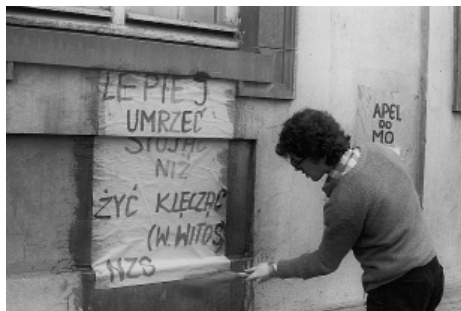 LEPIEJ
UMRZEĆ
STOJĄC
NIŻ
ŻYĆ KLĘCZĄC
(W. WITOS)
NZS
APEL
DO
MO